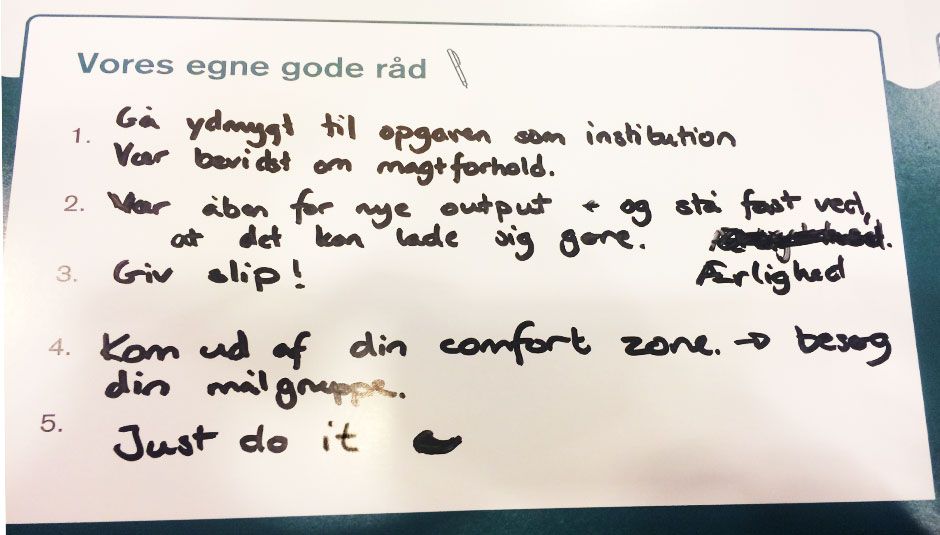 Vores egne gode råd
1. Gå ydmygt til opgaven som institution
Vær bevidst om magtforhold.
2. Vær åben for nye output + og stå fast ved,
at det kan lade sig gøre.
Ærlighed
3. Giv slip!
4. Kom ud af din comfort zone. → besøg
din målgruppe.
5. Just do it